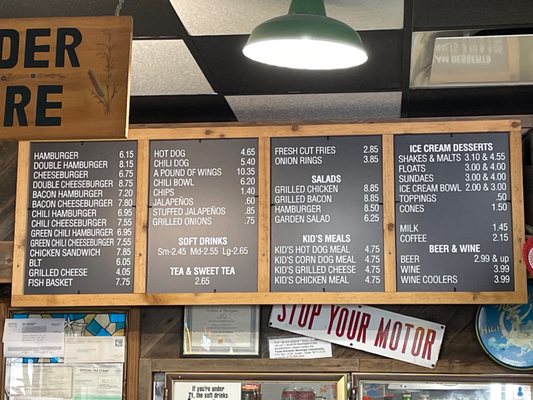 DER
RE
HAMBURGER 6.15
DOUBLE HAMBURGER 8.15
CHEESEBURGER 6.75
DOUBLE CHEESEBURGER 8.75
BACON HAMBURGER 7.20
BACON CHEESEBURGER 7.80
CHILI HAMBURGER 6.95
CHILI CHEESEBURGER 7.55
GREEN CHILI HAMBURGER 6.95
GREEN CHILI CHEESEBURGER 7.55
CHICKEN SANDWICH 7.85
BLT 6.05
GRILLED CHEESE 4.05
FISH BASKET 7.75
HOT DOG 4.65
CHILI DOG 5.40
A POUND OF WINGS 10.35
CHILI BOWL 6.20
CHIPS 1.40
JALAPEÑOS .60
STUFFED JALAPEÑOS .85
GRILLED ONIONS .75
SOFT DRINKS
Sm-2.45 Md-2.55 Lg-2.65
TEA & SWEET TEA
2.65
FRESH CUT FRIES 2.85
ONION RINGS 3.85
SALADS
GRILLED CHICKEN 8.85
GRILLED BACON 8.85
HAMBURGER 8.50
GARDEN SALAD 6.25
KID'S MEALS
KID'S HOT DOG MEAL 4.75
KID'S CORN DOG MEAL 4.75
KID'S GRILLED CHEESE 4.75
KID'S CHICKEN MEAL 4.75
ICE CREAM DESSERTS
SHAKES & MALTS 3.10 & 4.55
FLOATS 3.00 & 4.00
SUNDAES 3.00 & 4.00
ICE CREAM BOWL 2.00 & 3.00
TOPPINGS .50
CONES 1.50
MILK 1.45
COFFEE 2.15
BEER & WINE
BEER 2.99 & up
WINE 3.99
WINE COOLERS 3.99
STOP YOUR MOTOR
If you're under
21, the soft drinks